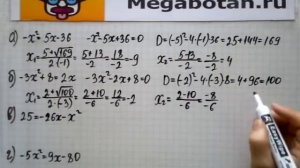 Megabotan.ru
а) -x²=5x-36 -x²-5x+36=0 D=(-5)²-4·(-1)36=25+144=169
x₁=5+√169/2·(-1)=5+13/-2=18/-2=-9 x₂=5-13/-2=-8/-2=4
б) -3x²+8=2x -3x²-2x+8=0 D=(-2)²-4·(-3)8=4+96=100
x₁=2+√100/2·(-3)=2+10/-6=12/-6=-2 x₂=2-10/-6=-8/-6
в) 25=-26x-x²
г) -5x²=9x-80